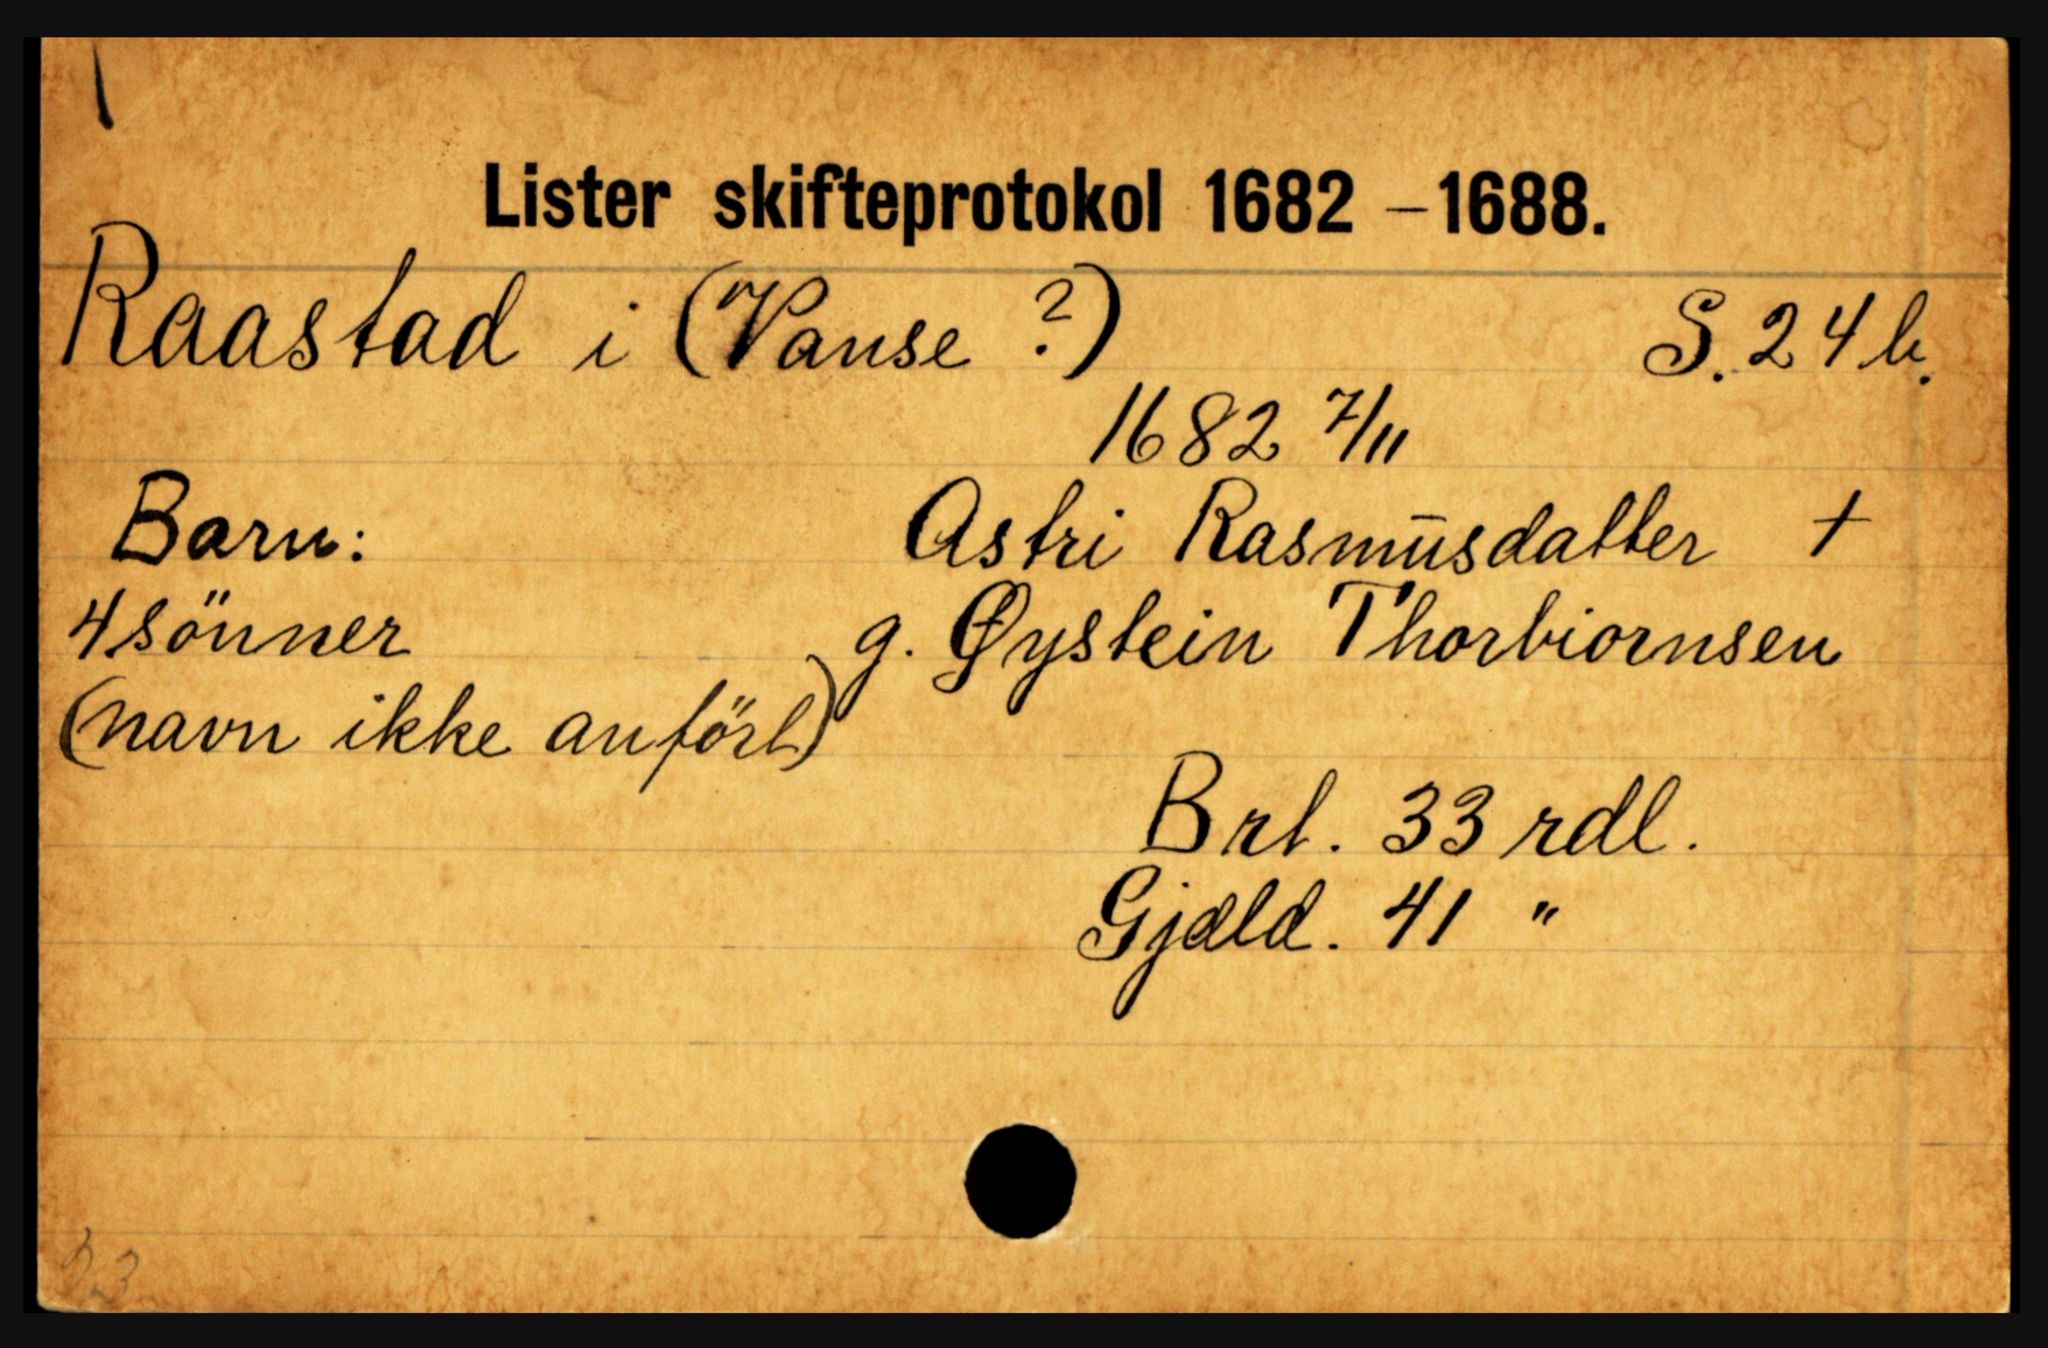 Lister skifteprotokol 1682 – 1688.
Raastad i (Vanse ?) S. 24 b.
1682 7/11
Barn: Astri Rasmusdatter +
4 sönner g. Øystein Thorbiornsen
(navn ikke anfört)
Brt. 33 rdl.
Gjæld. 41 "